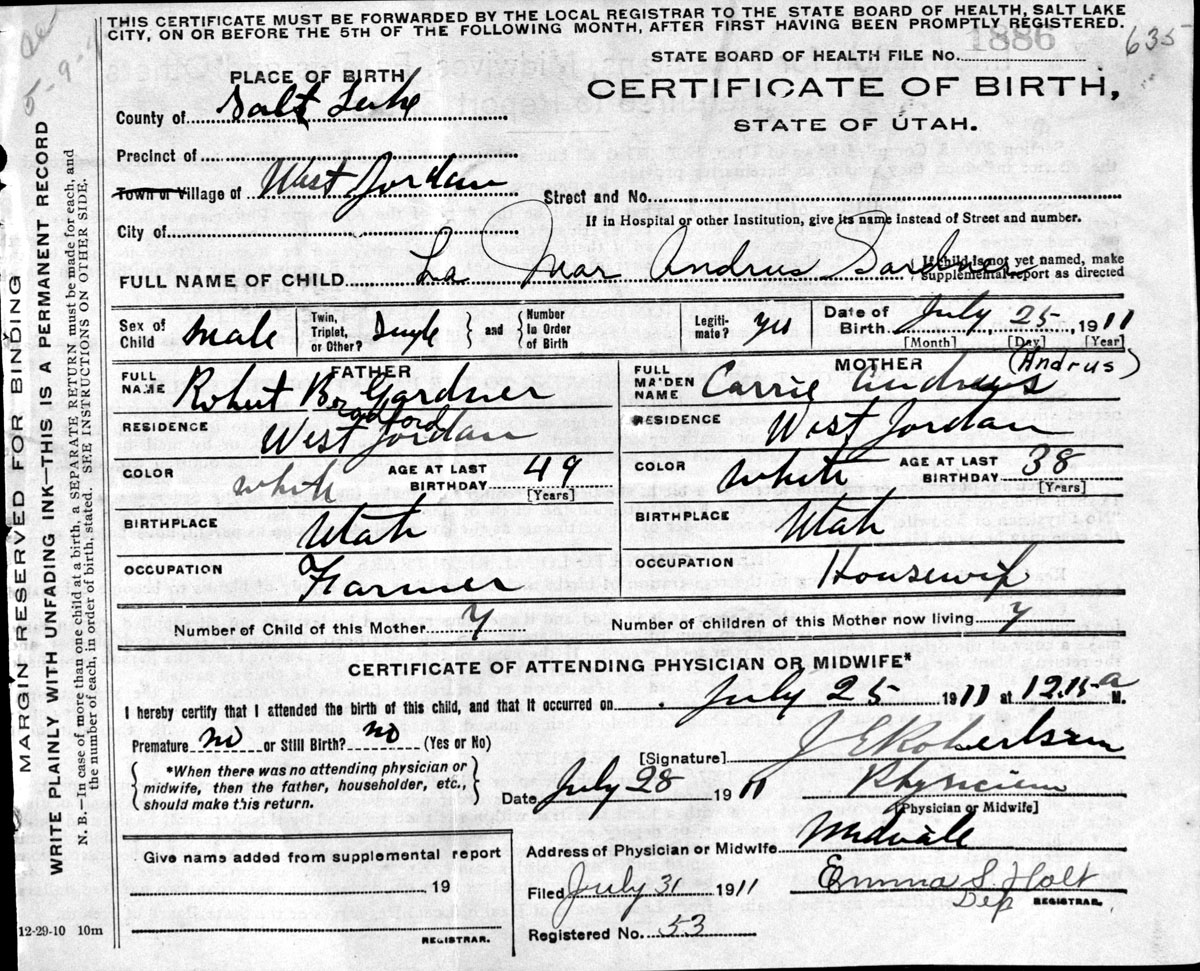 THIS CERTIFICATE MUST BE FORWARDED BY THE LOCAL REGISTRAR TO THE STATE BOARD OF HEALTH, SALT LAKE
CITY, ON OR BEFORE THE 5TH OF THE FOLLOWING MONTH, AFTER FIRST HAVING BEEN PROMPTLY REGISTERED.
STATE BOARD OF HEALTH FILE No. 1886 635
CERTIFICATE OF BIRTH,
STATE OF UTAH.
PLACE OF BIRTH
County of Salt Lake
Precinct of
Town or Village of West Jordan
Street and No.
If in Hospital or other Institution, give its name instead of Street and number.
City of
FULL NAME OF CHILD La Mar Andrus Gardner
If child is not yet named, make
supplemental report as directed
Sex of Child Male
Twin, Triplet, or Other? Single
and
Number In Order of Birth
Legiti-mate? yes
Date of Birth July 25, 1911
[Month] [Day] [Year]
FATHER
FULL NAME Robert B. Gardner
RESIDENCE West Jordan
COLOR white
AGE AT LAST BIRTHDAY 49
[Years]
BIRTHPLACE Utah
OCCUPATION Farmer
MOTHER (Andrus)
FULL MAIDEN NAME Carrie Andrews
RESIDENCE West Jordan
COLOR white
AGE AT LAST BIRTHDAY 38
[Years]
BIRTHPLACE Utah
OCCUPATION Housewife
Number of Child of this Mother 7
Number of children of this Mother now living 7
CERTIFICATE OF ATTENDING PHYSICIAN OR MIDWIFE*
I hereby certify that I attended the birth of this child, and that it occurred on July 25 1911 at 12.15 a M.
Premature no or Still Birth? no (Yes or No)
*When there was no attending physician or
midwife, then the father, householder, etc.,
should make this return.
[Signature] J E Robertson
Date July 28 1911
Physician
[Physician or Midwife]
Address of Physician or Midwife Midvale
Filed July 31 1911
Emma S. Holt
Dep REGISTRAR.
Registered No. 53
Give name added from supplemental report
19
REGISTRAR.
12-29-10 10m
MARGIN RESERVED FOR BINDING
WRITE PLAINLY WITH UNFADING INK—THIS IS A PERMANENT RECORD
N. B.—In case of more than one child at a birth, a SEPARATE RETURN must be made for each, and
the number of each, in order of birth, stated. SEE INSTRUCTIONS ON OTHER SIDE.